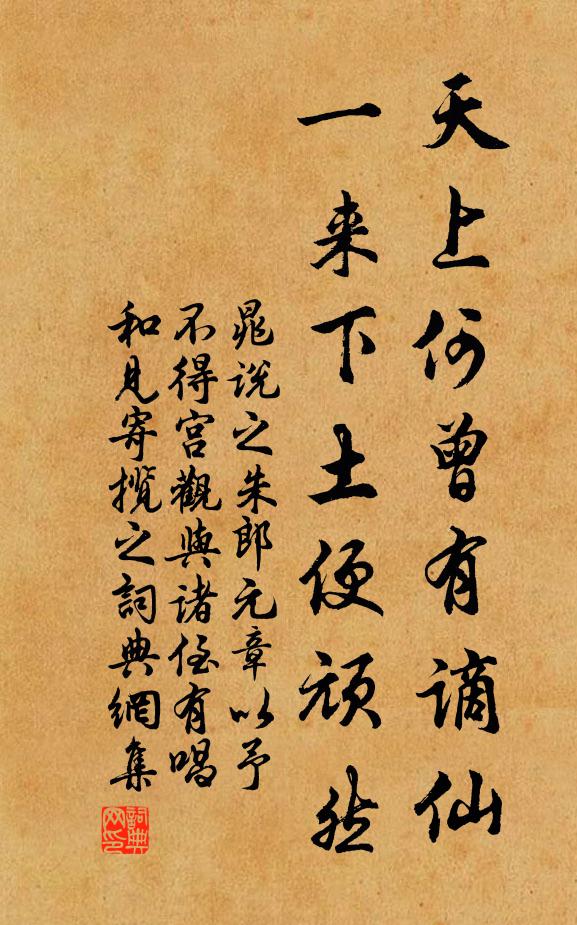 天上何曾有谪仙
一来下土便顽然
晁说之朱郎元章以予
不得宫觀與诸侄有唱
和见寄揽之詞典網集
詞典网印